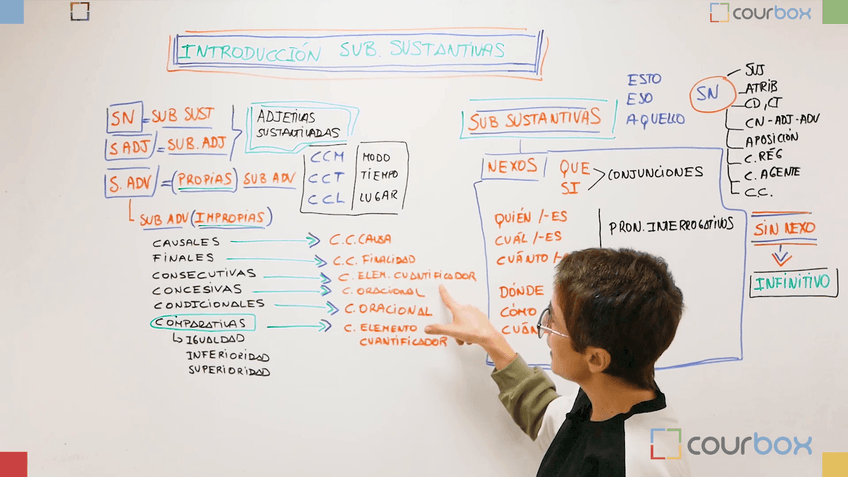 courbox
INTRODUCCIÓN SUB. SUSTANTIVAS
SN = SUB SUST
S ADJ = SUB. ADJ
ADJETIVAS
SUSTANTIVADAS
S. ADV = (PROPIAS) SUB ADV
CCM MODO
CCT TIEMPO
CCL LUGAR
SUB ADV (IMPROPIAS)
CAUSALES C.C. CAUSA
FINALES C.C. FINALIDAD
CONSECUTIVAS C. ELEM. CUANTIFICADOR
CONCESIVAS C. ORACIONAL
CONDICIONALES C. ORACIONAL
COMPARATIVAS C. ELEMENTO
CUANTIFICADOR
IGUALDAD
INFERIORIDAD
SUPERIORIDAD
SUB SUSTANTIVAS
ESTO
ESO
AQUELLO
SN
SUJ
ATRIB
CD, CI
CN-ADJ-ADV
APOSICIÓN
C. RÉG
C. AGENTE
C.C.
NEXOS
QUE
SI
CONJUNCIONES
QUIÉN/-ES
CUÁL/-ES
CUÁNTO/-ES
PRON. INTERROGATIVOS
DÓNDE
CÓMO
SIN NEXO
INFINITIVO
courbox